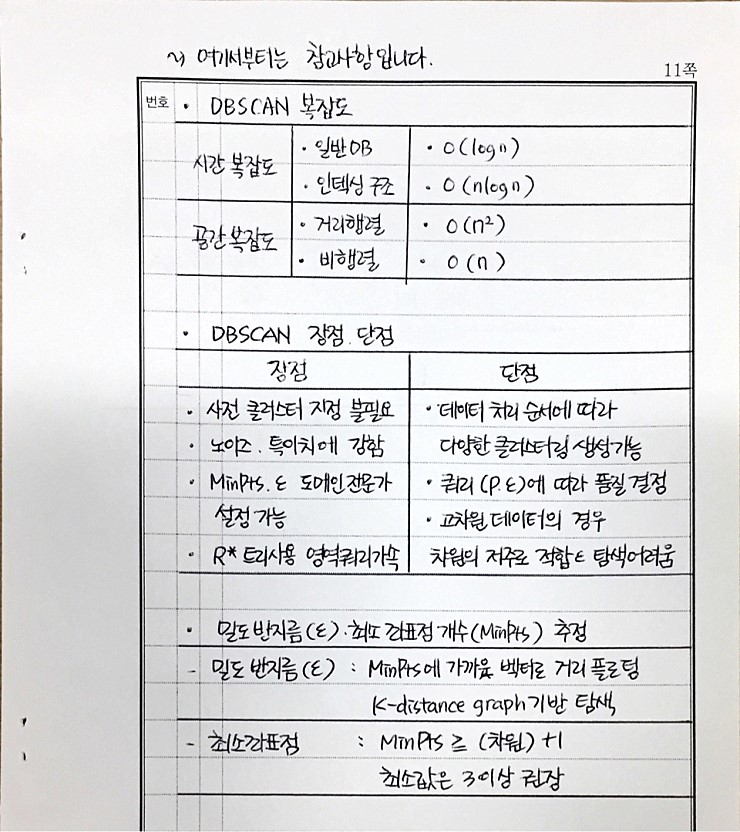 ~) 여기서부터는 참고사항입니다.
11쪽
번호 • DBSCAN 복잡도
시간 복잡도 · 일반DB · O(logn)
· 인텍싱 구조 · O(nlogn)
공간 복잡도 · 거리행렬 · O(n²)
· 비행렬 · O(n)
• DBSCAN 장점. 단점
장점 단점
· 사전 클러스터 지정 불필요 · 데이터 처리 순서에 따라
· 노이즈. 특이치에 강함 다양한 클러스터링 생성가능
· MinPts. ε 도메인전문가 · 쿼리(P.ε)에 따라 품질 결정
설정 가능 · 고차원 데이터의 경우
· R* 트리사용 영역쿼리가속 차원의 저주로 적합ε 탐색어려움
• 밀도 반지름(ε)·최소 좌표점 개수(MinPts) 추정
- 밀도 반지름(ε) : MinPts에 가까운 벡터로 거리 플로팅
K-distance graph기반 탐색
- 최소좌표점 : MinPts ≥ (차원)+1
최소값은 3이상 권장